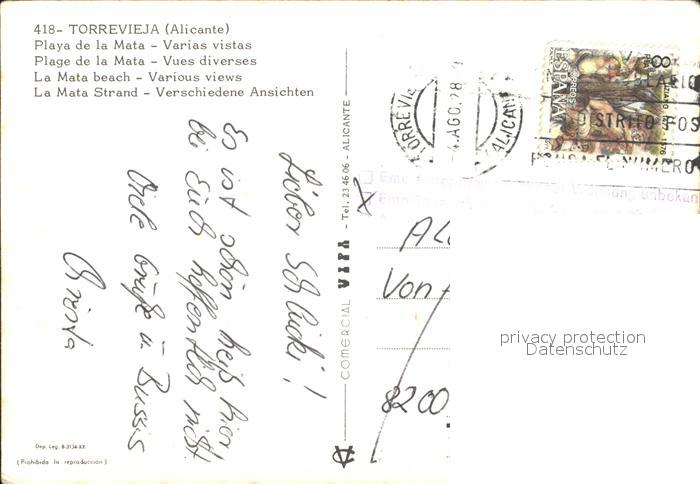 418- TORREVIEJA (Alicante)
Playa de la Mata - Varias vistas
Plage de la Mata - Vues diverses
La Mata beach - Various views
La Mata Strand - Verschiedene Ansichten
Lieber
Es ist schön heiß hier
bei Euch hoffentlich nicht
Viele Grüße u. Bussis
Christa
COMERCIAL VIPA - Tel. 23 46 06 - ALICANTE
TORREVIE
4.AGO.78
ALICAN
8
ESPAÑA
CORREOS
DISTRITO POS
NUMERO
unbekan
Von
8200
privacy protection
Datenschutz
Dep. Leg. B-3134-XX
(Prohibida la reproducción)